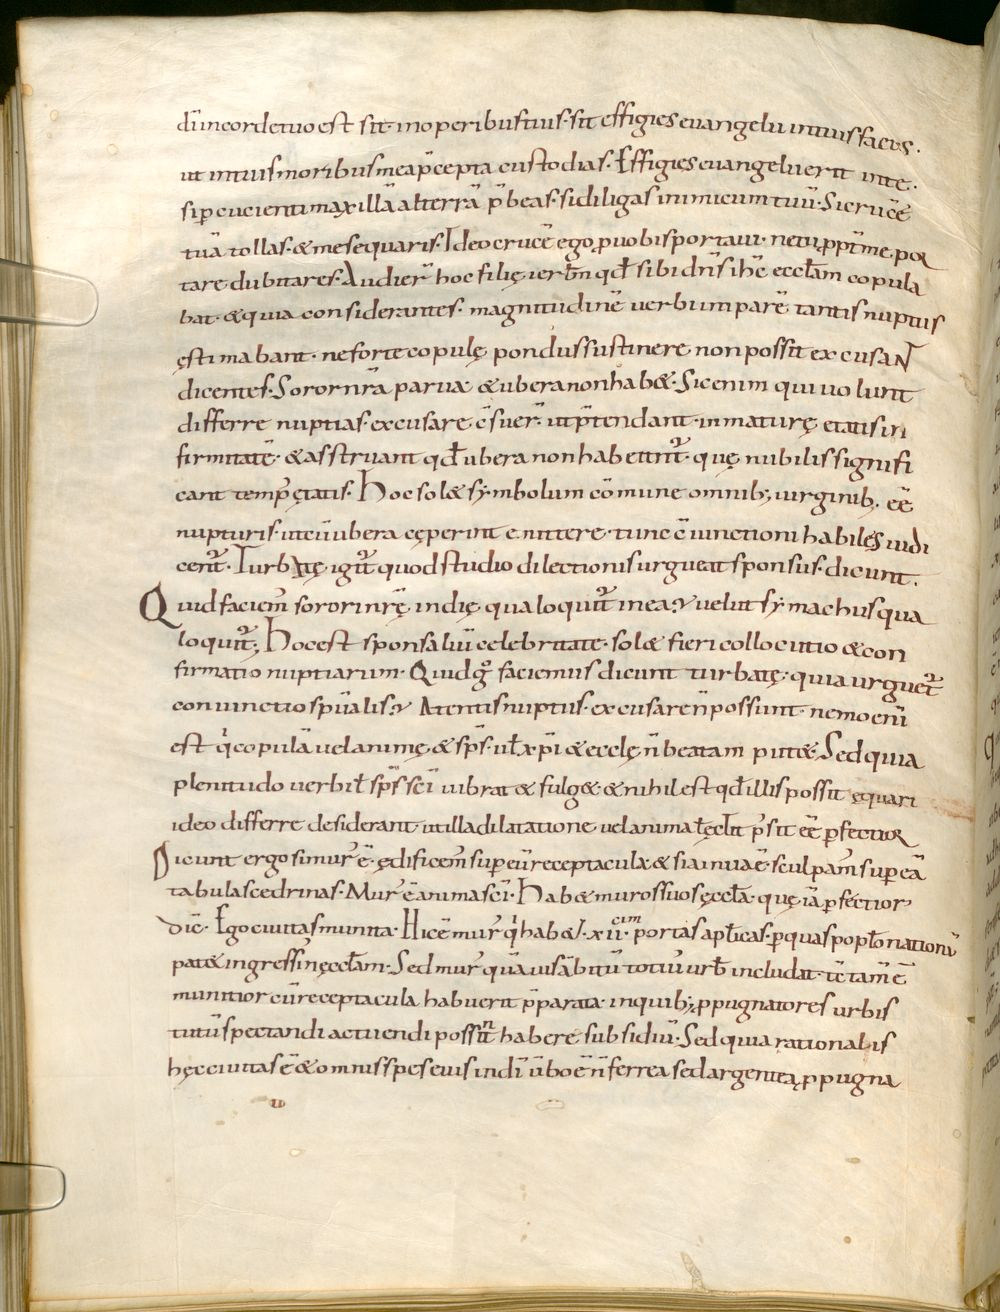 dn̄i incorde tuo est sit inoperibus tuis. sit effigies euangelii in tuis factis.
ut in tuis moribus mea p̄cepta custodias. Effigies euangelii erit in te.
si ꝑcucienti maxillā alterā p̄beas. si diligas inimicum tuū. Si crucē
tuā tollas. & me sequaris. Ideo crucē ego ꝓ uobis portaui. ne tu ꝓpt̄ me por
tare dubitares. Audier̄ hoc filię ierl̄m qd̄ sibi dn̄s ih̄c eccl̄am copula
bat. & quia considerantes. magnitudinē uerbi imparē tantis nuptiis
ęstimabant. ne forte copulę pondus sustinere non possit excusant
dicentes. Soror nr̄a parua & ubera non hab&. Sic enim qui uolunt
differre nuptias. excusare c̄suer̄. ut p̄tendant. inmaturę etatis in
firmitatē. & asstruant qd̄ ubera non habet int̄. quę nubilis signifi
cant temp̄ ętatis. Hoc sol& symbolum cōmune omnib; uirginib; eē
nupturis. ut cū ubera cęperint emittere. tunc c̄iunctioni habiles iudi
cent̄. Turbatę igit̄ quod studio dilectionis urgueat sponsus. dicunt.
Quid faciem̄ sorori nr̄ę in dię qua loquit̄ in ea? uelut symachus qua
loquit̄; Hoc est sponsaliū celebritate. sol& fieri collocutio & con
firmatio nuptiarum. Quid g° faciemus dicunt turbatę; quia urguet̄
coniunctio sp̄ualis? A tentis nuptiis. excusare n̄ possunt. nemo enī
est q̇ copulā uel animę & sp̄s. ul̄ xp̄i & ecclę n̄ beatam putt&. Sed quia
plenitudo uerbi ul̄ sp̄s sc̄i uibrat & fulg&. & nihil est qd̄ illis possit ęquari
ideo differre desiderant. ut illa dilatatione uel anima ul̄ ęcl̄ia p̄sit eē ꝑfectior
Dicunt ergo si mur̄ ē. ędificem̄ suꝑ eū receptacula. & si ianua ē. sculpam̄ suꝑ eā
tabulas cedrinas. Mur̄ ē anima sc̄i. Hab& muros suos ęccl̄a. quę iā ꝑfectior
dic̄. Ego ciuitas munita. Hic ē mur̄ q̇ hab&. xii.cim portas apl̄icas. ꝑ quas popl̄o nationū
pat& ingress̄ in ęccl̄am. Sed mur̄ quāuis ābitū totiu̅ urb̄ includat. tc̄ tam̄ ē
munitior cū receptacula habuerit p̄parata. in quib; ꝓpugnatores urbis
tutū spectandi ac tuendi possint habere subsidiū. Sed quia rationabilis
hęc ciuitas ē & omnis spes eius in dn̄i ūbo ē n̄ ferrea sed argentea ꝓpugna